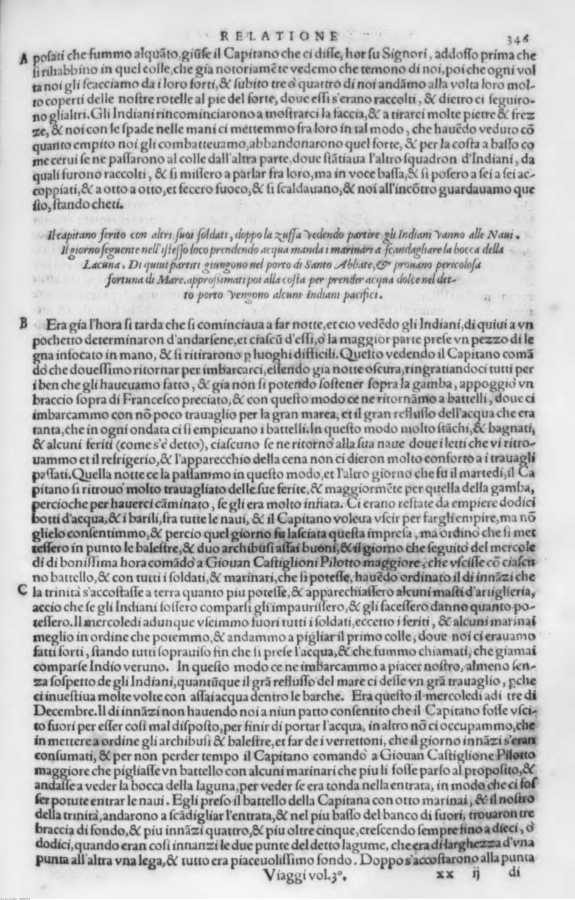 RELATIONE 346
A posati che fummo alquãto, giũse il Capitano che ci disse, hor su Signori, addosso prima che
si rihabbino in quel colle, che gia notoriamẽte vedemo che temono di noi, poi che ogni vol
ta noi gli scacciamo da i loro forti, & subito tre o quattro di noi andãmo alla volta loro mol-
to coperti delle nostre rotelle al pie del forte, doue essi s'erano raccolti, & dietro ci seguiro-
no gli altri. Gli Indiani rincominciarono a mostrarci la faccia, & a tirarci molte pietre & frez
ze, & noi con le spade nelle mani ci mettemmo fra loro in tal modo, che hauẽdo veduto cõ
quanto empito noi gli combatteuamo, abbandonarono quel forte, & per la costa a basso co
me cerui se ne passarono al colle dall'altra parte, doue stãtiaua l'altro squadron d'Indiani, da
quali furono raccolti, & si missero a parlar fra loro, ma in voce bassa, & si posero a sei a sei ac-
coppiati, & a otto a otto, et fecero fuoco, & si scaldauano, & noi all'incõtro guardauamo que
sto, stando cheti.
Il capitano ferito con altri suoi soldati, doppo la zuffa vedendo partire gli Indiani vanno alle Naui.
Il giorno seguente nell'istesso loco prendendo acqua manda i marinari a scandagliare la bocca della
Lacuna. Di quiui partiti giungono nel porto di Santo Abbate, & prouano pericolosa
fortuna di Mare, approssimati poi alla costa per prender acqua dolce nel det-
to porto vengono alcuni Indiani pacifici.
B Era gia l'hora si tarda che si cominciaua a far notte, et cio vedẽdo gli Indiani, di quiui a vn
pochetto determinaron d'andarsene, et ciascũ d'essi, o la maggior parte prese vn pezzo di le
gna infocato in mano, & si ritirarono p luoghi difficili. Questo vedendo il Capitano comã
dò che douessimo ritornar per imbarcarci, essendo gia notte oscura, ringratiandoci tutti per
i ben che gli haueuamo fatto, & gia non si potendo sostener sopra la gamba, appoggiò vn
braccio sopra di Francesco preciato, & con questo modo ce ne ritornãmo a battelli, doue ci
imbarcammo con nõ poco trauaglio per la gran marea, et il gran reflusso dell'acqua che era
tanta, che in ogni ondata ci si empieuano i battelli. In questo modo molto stãchi, & bagnati,
& alcuni feriti (come s'è detto), ciascuno se ne ritornò alla sua naue doue i letti che vi ritro-
uammo et il refrigerio, & l'apparecchio della cena non ci dieron molto conforto a i trauagli
passati. Quella notte ce la passammo in questo modo, et l'altro giorno che fu il martedi, il Ca
pitano si ritrouò molto trauagliato delle sue ferite, & maggiormẽte per quella della gamba,
percioche per hauerci cãminato, se gli era molto infiata. Ci erano restate da empiere dodici
botti d'acqua, & i barili, fra tutte le naui, & il Capitano voleua vscir per fargli empire, ma nõ
glielo consentimmo, & percio quel giorno fu lasciata questa impresa, ma ordinò che si met
tessero in punto le balestre, & duo archibusi assai buoni, & il giorno che seguitò del mercole
di di bonissima hora comãdò a Giouan Castiglioni Pilotto maggiore, che vscisse cõ ciascu
no battello, & con tutti i soldati, & marinari, che si potesse, hauẽdo ordinato il di innãzi che
C la trinità s'accostasse a terra quanto piu potesse, & apparecchiassero alcuni masti d'artiglieria,
accio che se gli Indiani fossero comparsi gli impaurissero, & gli facessero danno quanto po-
tessero. Il mercoledi adunque vscimmo fuori tutti i soldati, eccetto i feriti, & alcuni marinai
meglio in ordine che potemmo, & andammo a pigliar il primo colle, doue noi ci erauamo
fatti forti, stando tutti soprauiso fin che si prese l'acqua, & che fummo chiamati, che giamai
comparse Indio veruno. In questo modo ce ne imbarcammo a piacer nostro, almeno sen-
za sospetto de gli Indiani, quantũque il grã reflusso del mare ci desse vn grã trauaglio, pche
ci inuestiua molte volte con assai acqua dentro le barche. Era questo il mercoledi adi tre di
Decembre. Il di innãzi non hauendo noi a niun patto consentito che il Capitano fosse vsci-
to fuori per esser cosi mal disposto, per finir di portar l'acqua, in altro nõ ci occupammo, che
in mettere a ordine gli archibusi & balestre, et far de i verrettoni, che il giorno innãzi s'eran
consumati, & per non perder tempo il Capitano comandò a Giouan Castiglione Pilotto
maggiore che pigliasse vn battello con alcuni marinari che piu li fosse parso al proposito, &
andasse a veder la bocca della laguna, per veder se era tonda nella entrata, in modo che ci fos
ser potute entrar le naui. Egli preso il battello della Capitana con otto marinai, & il nostro
della trinità, andarono a scãdigliar l'entrata, & nel piu basso del banco di fuori, trouaron tre
braccia di fondo, & piu innãzi quattro, & piu oltre cinque, crescendo sempre fino a dieci, o
dodici, quando eran cosi innanzi le due punte del detto lagume, che era di larghezza d'vna
punta all'altra vna lega, & tutto era piaceuolissimo fondo. Doppo s'accostarono alla punta
Viaggi vol. 3°. xx ij di